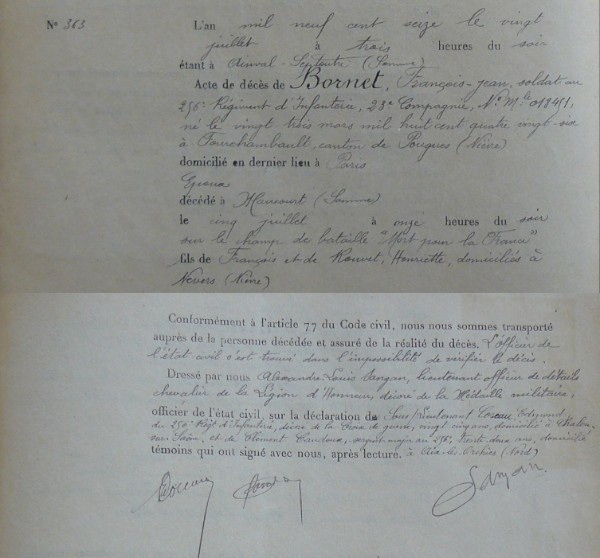 N° 363
L'an mil neuf cent seize le vingt
juillet à trois heures du soir
étant à (Somme)
Acte de décès de Bornet, François-Jean, soldat au
Régiment d'Infanterie, 23e Compagnie, N° Mle 013411,
né le vingt trois mars mil huit cent quatre vingt-six
à Fourchambault, canton de Pougues (Nièvre)
domicilié en dernier lieu à Paris
Epoux
décédé à (Somme)
le cinq juillet à onze heures du soir
sur le champ de bataille "Mort pour la France"
fils de François et de Henriette, domiciliés à
Nevers (Nièvre)
Conformément à l'article 77 du Code civil, nous nous sommes transporté
auprès de la personne décédée et assuré de la réalité du décès. L'officier de
l'état civil s'est trouvé dans l'impossibilité de vérifier le décès.
Dressé par nous Alexandre Louis lieutenant officier de détails
chevalier de la Légion d'Honneur, décoré de la Médaille militaire,
officier de l'état civil, sur la déclaration de Sous Lieutenant Edmond
du Régt d'Infanterie, décoré de la Croix de guerre, vingt cinq ans, domicilié à Chalon
sur Saône, et de Clément sergent major au trente deux ans, domicilié
témoins qui ont signé avec nous, après lecture. à (Nord)